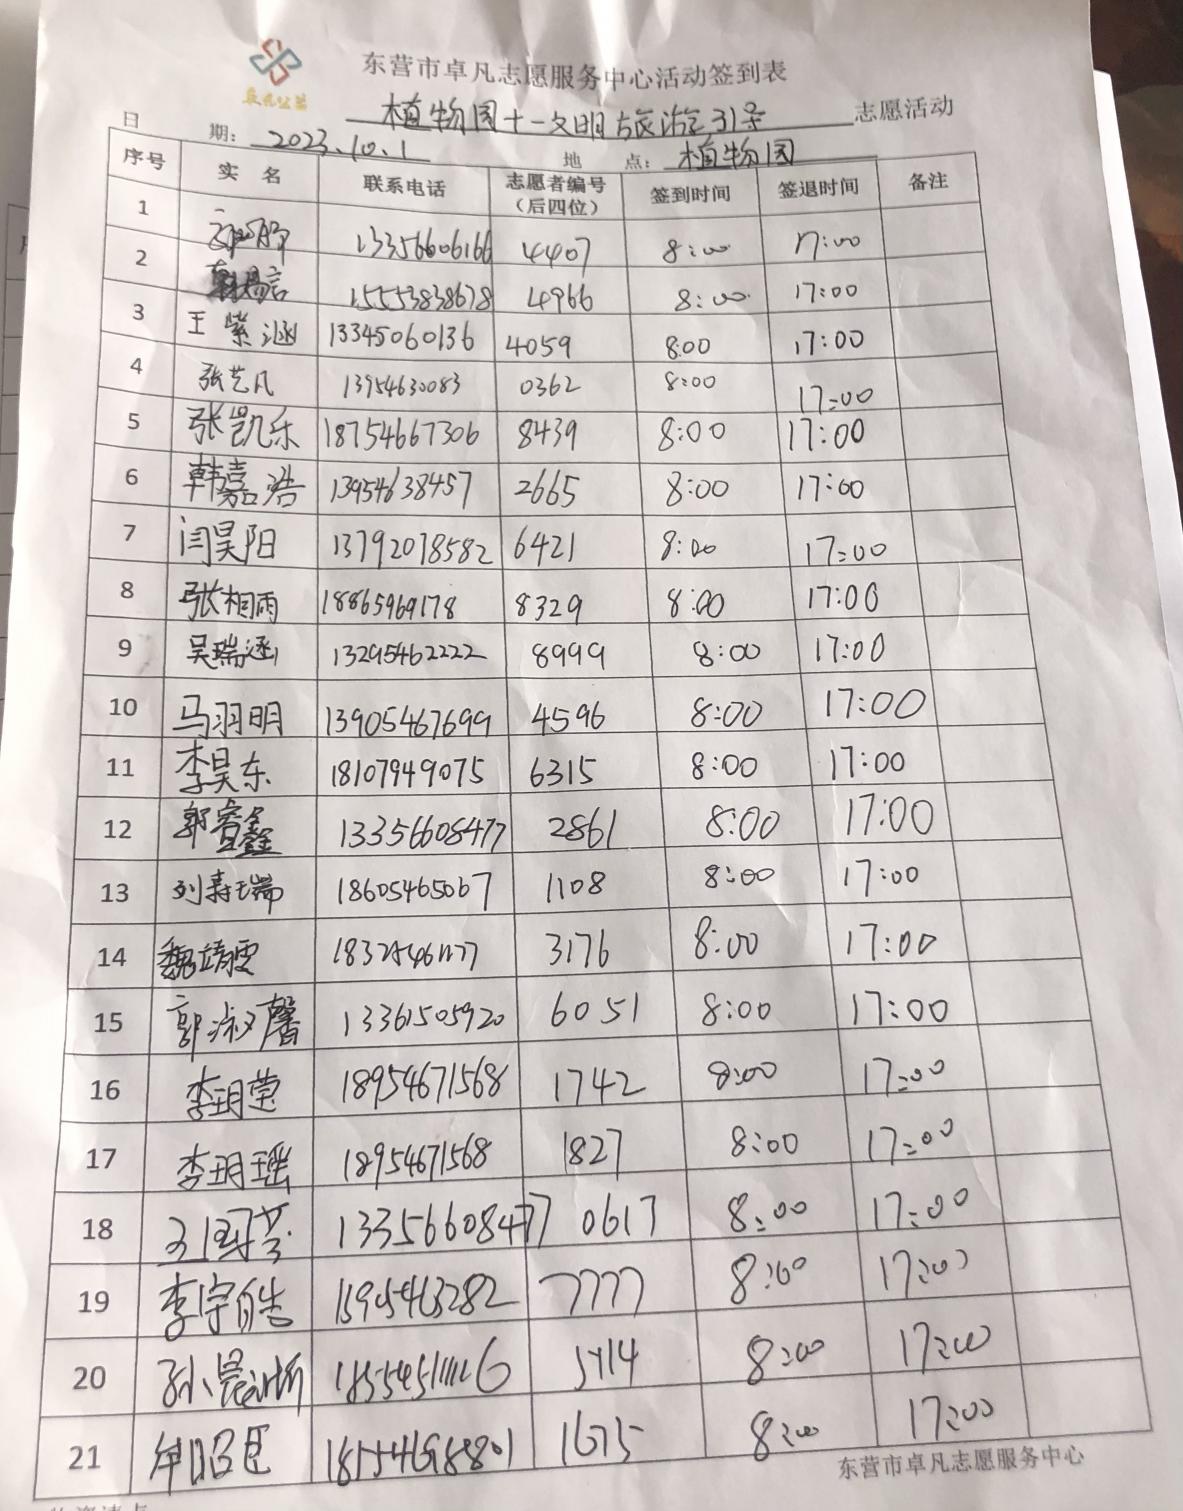 东营市卓凡志愿服务中心活动签到表
卓凡公益
植物园十一文明旅游引导 志愿活动
日 期: 2023.10.1 地 点: 植物园
序号 实 名 联系电话 志愿者编号(后四位) 签到时间 签退时间 备注
1 13356606166 4407 8:00 17:00
2 15553838678 4966 8:00 17:00
3 王紫涵 13345060136 4059 8:00 17:00
4 张艺凡 13954630083 0362 8:00 17:00
5 张凯乐 18754667306 8439 8:00 17:00
6 韩嘉浩 13954638457 2665 8:00 17:00
7 闫昊阳 13792078582 6421 8:00 17:00
8 张相雨 18865969178 8329 8:00 17:00
9 吴瑞涵 13295462222 8999 8:00 17:00
10 马羽明 13905467699 4596 8:00 17:00
11 李昊东 18107949075 6315 8:00 17:00
12 郭睿鑫 13356608477 2861 8:00 17:00
13 刘寿瑞 18605465067 1108 8:00 17:00
14 魏靖雯 3176 8:00 17:00
15 郭淑馨 13361505920 6051 8:00 17:00
16 李玥莹 18954671568 1742 8:00 17:00
17 李玥瑶 18954671568 1827 8:00 17:00
18 13356608477 0617 8:00 17:00
19 李宇皓 1595463282 7777 8:00 17:00
20 8:00 17:00
21 1675 8:00 17:00
东营市卓凡志愿服务中心